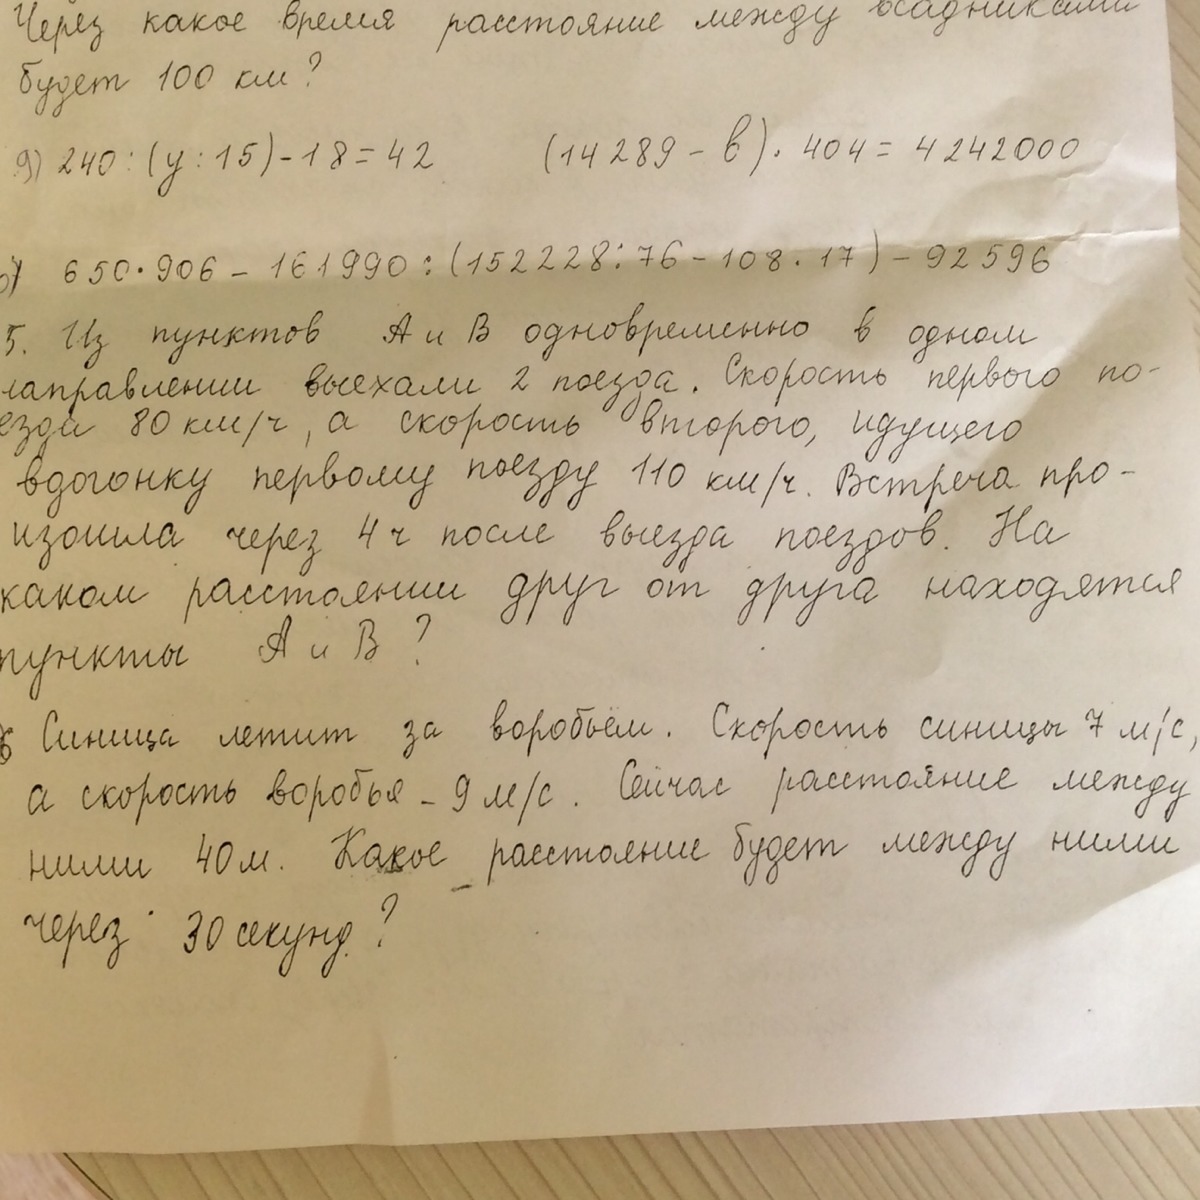 Через какое время расстояние между всадниками
будет 100 км?
9) 240:(у:15)-18=42 (14289-в)·404=4242000
650·906-161990:(152228:76-108·17)-92596
5. Из пунктов А и В одновременно в одном
направлении выехали 2 поезда. Скорость первого по-
езда 80 км/ч, а скорость второго, идущего
вдогонку первому поезду 110 км/ч. Встреча про-
изошла через 4 ч после выезда поездов. На
каком расстоянии друг от друга находятся
пункты А и В?
Синица летит за воробьём. Скорость синицы 7 м/с,
а скорость воробья - 9 м/с. Сейчас расстояние между
ними 40 м. Какое расстояние будет между ними
через 30 секунд?